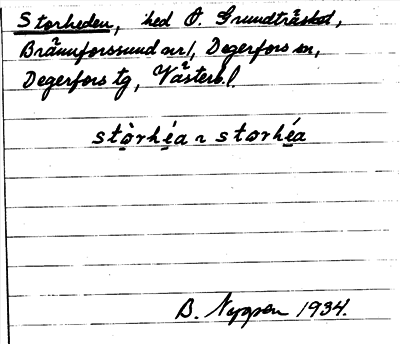 Storheden, hed O. Grundträsket,
Brännforssund nr 1, Degerfors sn,
Degerfors tg, Västerb. l.
stòrhéa ~ storhéa
B. 1934.